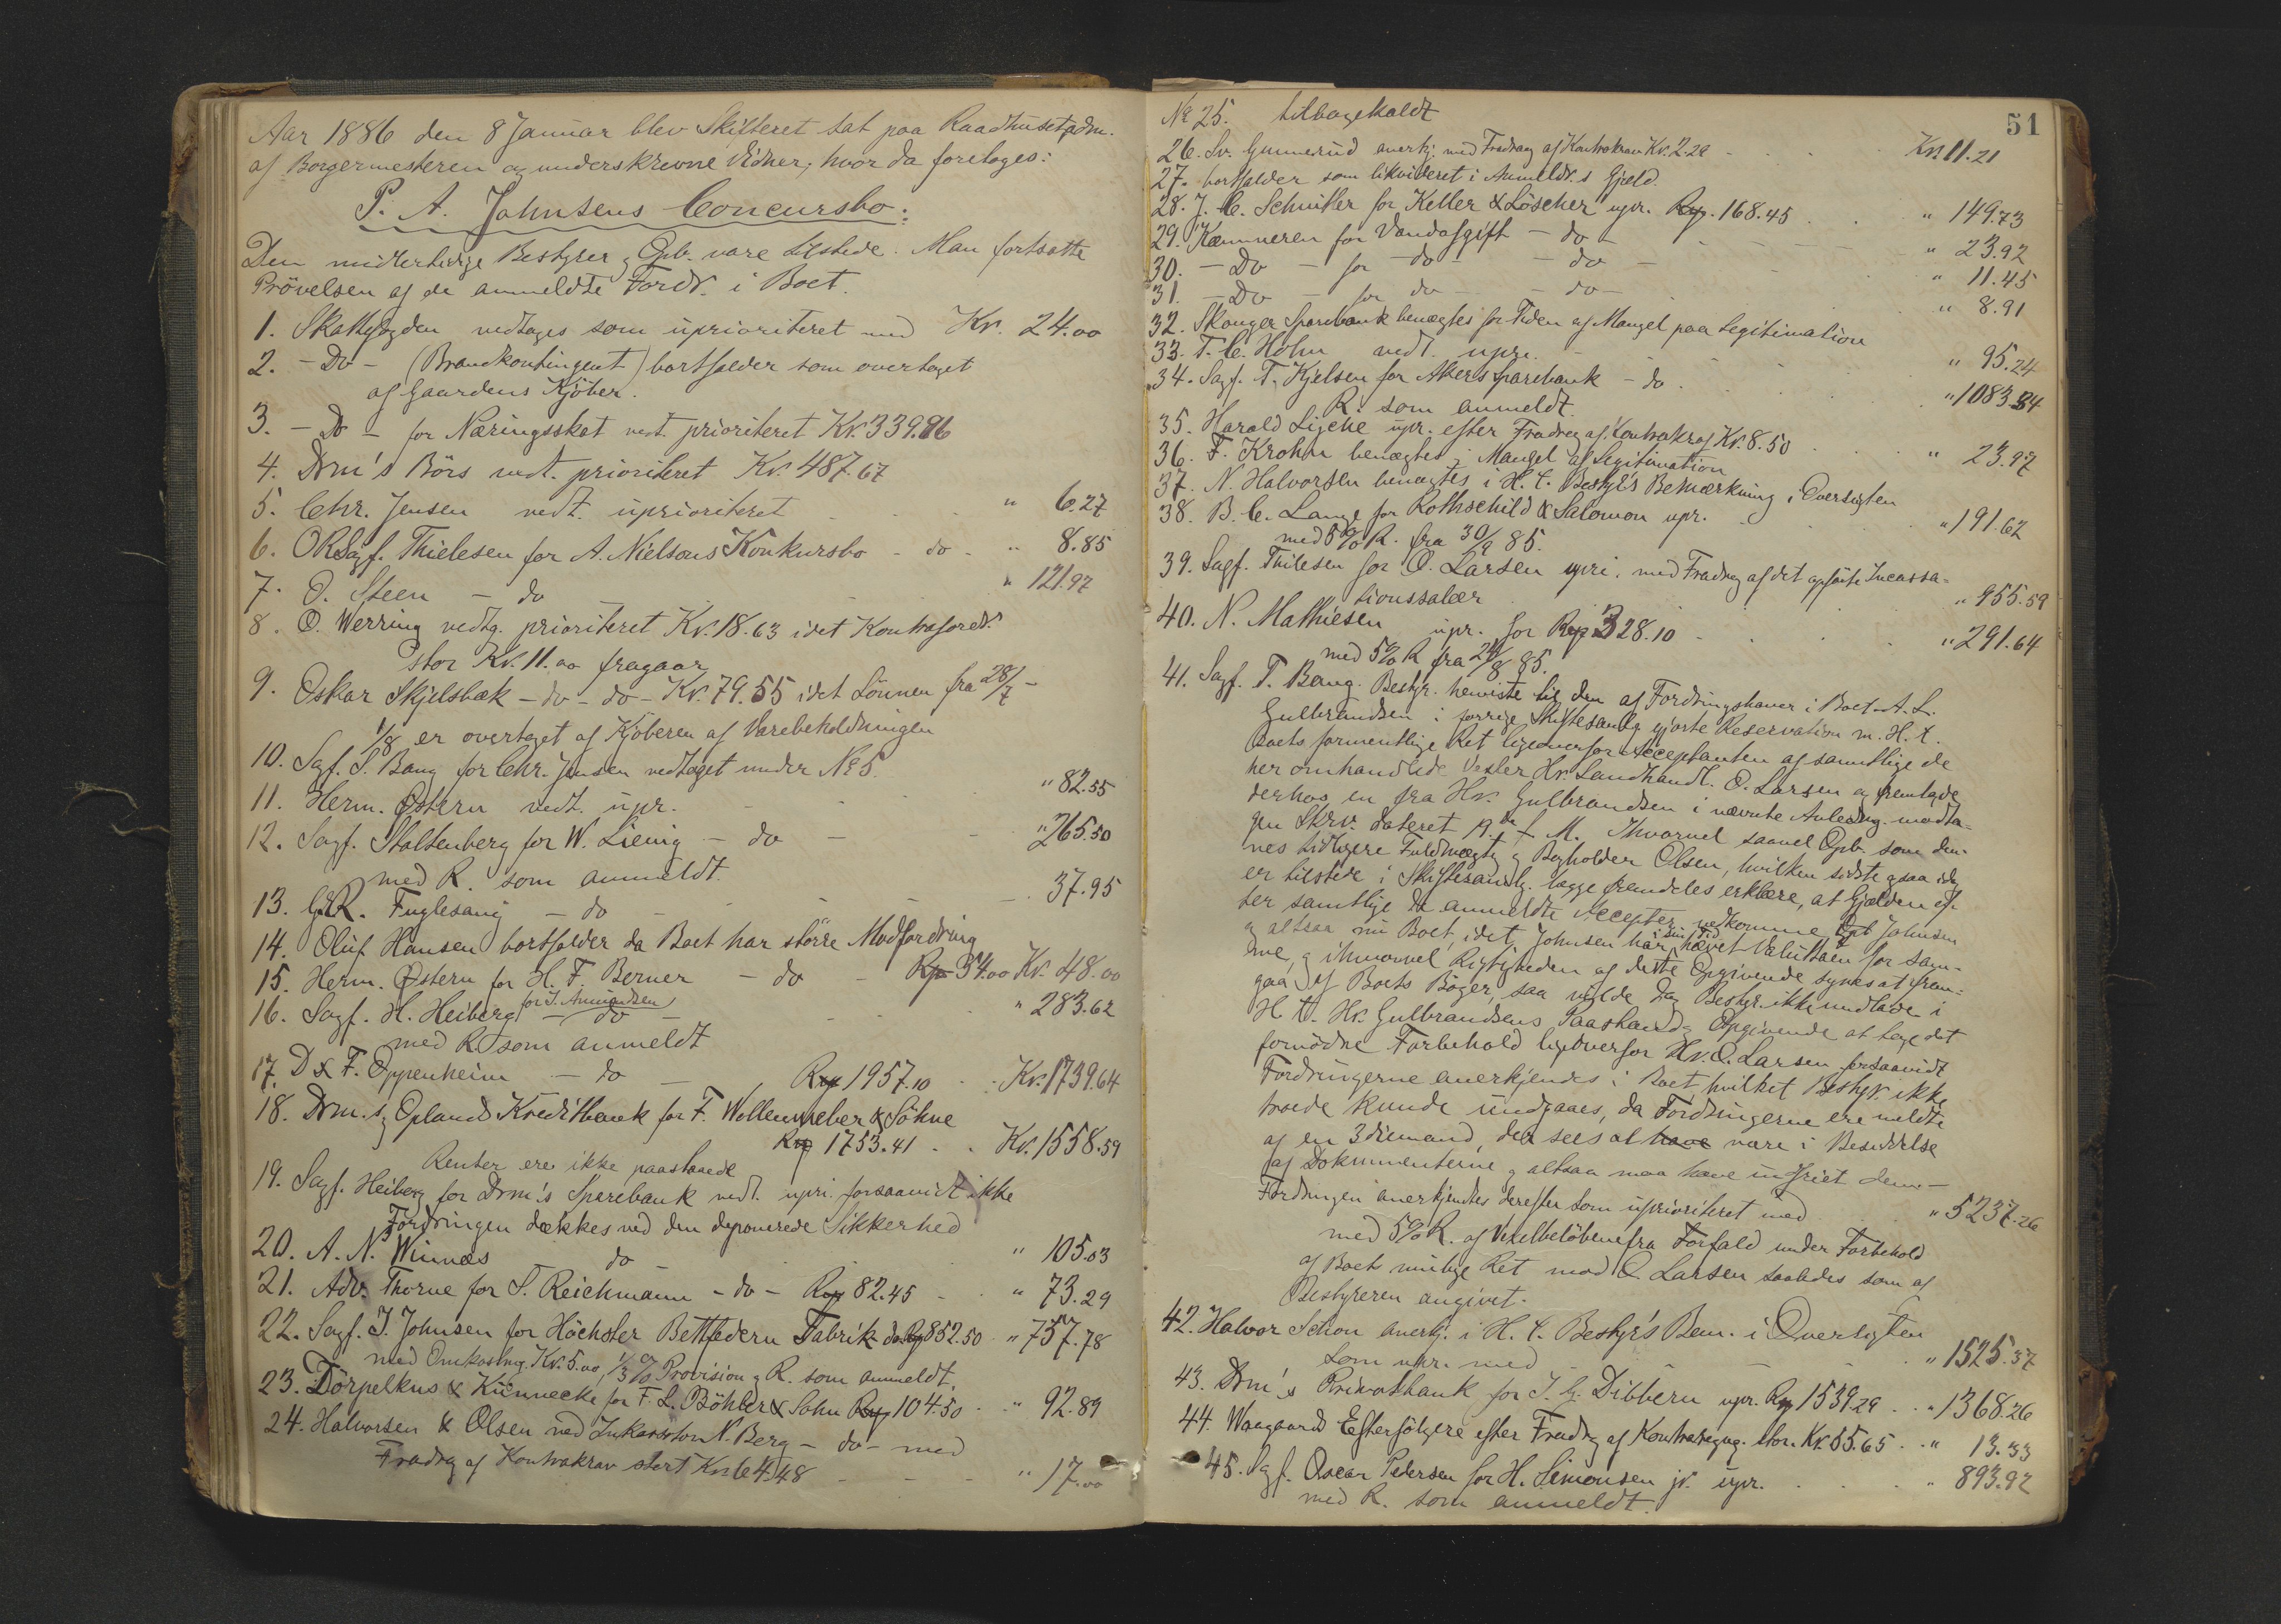 Aar 1886 den 8 Januar blev Skifteret sat paa Raadhuset adm.
af Borgermesteren og underskrevne Vidner, hvor da foretoges:
P. A. Johnsens Concursbo:
Den midlertidige Bestyrer og Opb. vare tilstede. Man fortsatte
Prövelsen af de anmeldte Fordr. i Boet.
1. Skattefogden vedtoges som uprioriteret med Kr. 24.00
2. - Do - (Brandkontingent) bortfalder som overtaget
af Gaardens Kjöber.
3. - Do - for Næringsskat vedt. prioriteret Kr. 339.86
4. Drm's Börs vedt. prioriteret Kr. 487.67
5. Chr. Jensen vedt. uprioriteret " 6.27
6. ORSagf. Thielesen for A. Nielsens Konkursbo - do - " 8.85
7. O. Steen - do - " 121.97
8. O. Werring vedtg. prioriteret Kr. 18.63 idet Kontrafordr.
stor Kr. 11.00 fragaar
9. Oskar Skjelsbæk - do - do - Kr. 79.55 idet Lönnen fra 28/7 -
1/8 er overtaget af Kjöberen af Varebeholdningen
10. Sagf. S. Bang for Chr. Jensen vedtaget under No 5.
11. Herm. Østern vedt. upr. " 82.55
12. Sagf. Stoltenberg for W. Liemig - do - " 265.50
med R. som anmeldt.
13. G&R. Fuglesang - do - 37.95
14. Oluf Hansen bortfalder da Boet har större Modfordring
15. Herm. Østern for H. F. Berner - do - Rp 54.00 Kr. 48.00
16. Sagf. H. Heiberg for J. Amundsen - do - " 283.62
med R. som anmeldt
17. D & F. Oppenheim - do - Rp 1957.10 Kr. 1739.64
18. Drm.s og Oplands Kreditbank for F. Wollenweber & Söhne
Rp 1753.41 Kr. 1558.59
Renter ere ikke paastaaede
19. Sagf. Heiberg for Drm's Sparebank vedt. upri. forsaavidt ikke
Fordringen dækkes ved den deponerede Sikkerhed
20. A. N. Winnæs do " 105.03
21. Adv. Thorne for S. Reichmann - do - Rp 82.45 " 73.29
22. Sagf. J. Johnsen for Höchster Bettfedern Fabrik do. Rp 852.50 " 757.78
med Omkostng. Kr. 5.00, 1/3 % Provision og R. som anmeldt.
23. Törpelkus & Künnecke for F. L. Böhler & Sohn Rp 104.50 " 92.89
24. Halvorsen & Olsen ved Inkassator N. Berg - do - med
Fradrag af Kontrakrav stort Kr. 64.48 " 17.00
51
No 25. tilbagekaldt
26. Sv. Gunnerud anerkj. med Fradrag af Kontrakrav Kr. 2.28 Kr. 11.21
27. bortfalder som likvideret i Anmeldr.s Gjæld.
28. J. C. Schniller for Keller & Löscher upr. Rp. 168.45 " 149.73
29. Kæmneren for Vandafgift - do - " 23.92
30. - Do - for - do - - do - " 11.45
31. - Do - for do - - do - " 8.91
32. Skouger Sparebank benægtes for Tiden af Mangel paa Legitimation
33. T. C. Holm vedt. upr. " 95.24
34. Sagf. T. Kjelsen for Akers Sparebank - do. " 1083.84
R. som anmeldt.
35. Harald Lyche upr. efter Fradrag af Kontrakrav Kr. 8.50 " 23.97
36. F. Krohn benægtes i Mangel af Legitimation
37. N. Halvorsen benægtes i H. t. Bestyr's Bemærkning i Oversigten
38. B. C. Lange for Rothschild & Salomon upr. " 191.62
med 5% R. fra 30/9 85.
39. Sagf. Thilesen for O. Larsen upri. med Fradrag af det opförte Incassa-
tionssalær " 955.59
40. N. Mathiesen upr. for Rp 328.10 " 291.64
med 5% R fra 24/8 85.
41. Sagf. T. Bang. Bestyr. henviste til den af Fordringshaver i Boet A. L.
Gulbrandsen i forrige Skiftesamlg gjorte Reservation m. H. t.
Boets formentlige Ret ligeoverfor Acceptanten af samtlige de
her omhandlede Vexler Hr. Landhandl. O. Larsen og fremlagde
derhos en fra Hr. Gulbrandsen i nævnte Anledng. modta-
gen Skriv. dateret 19. de f. M. Ihvorvel saavel Opb. som den-
nes tidligere Fuldmægtig og Bogholder Olsen, hvilken sidste ogsaa idag
er tilstede i Skiftesamlg. begge fremdeles erklære, at Gjælden ef-
ter samtlige de anmeldte Accepter vedkomme Opb Johnsen
og altsaa nu Boet, idet Johnsen har i sin Tid hævet Valutaen for sam-
me, og ihvorvel Rigtigheden af dette Opgivende synes at frem-
gaa af Boets Böger, saa vilde dog Bestyr. ikke undlade i
H. t. Hr. Gulbrandsens Paastand og Opgivende at tage det
fornödne Forbehold ligeoverfor Hr. O. Larsen forsaavidt
Fordringerne anerkjendes i Boet hvilket Bestyr. ikke
troede kunde undgaaes, da Fordringerne ere meldte
af en 3diemand, der sees at have være i Besiddelse
af Dokumenterne og altsaa maa have indfriet dem. -
Fordringen anerkjendtes derefter som uprioriteret med " 5237.26
med 5% R. af Vexelbelöbene fra Forfald under Forbehold
af Boets mulige Ret mod O. Larsen saaledes som af
Bestyreren angivet.
42. Halvor Schou anerkj. i H. t. Bestyr's Bem. i Oversigten
som upr. med " 1525.37
43. Drm's Privatbank for J. G. Dibbern upr. Rp 1539.29 " 1368.26
44. Waagaards Efterfölgere efter Fradrag af Kontraregng. stor. Kr. 55.65 " 13.33
45. Sagf. Oscar Pedersen for H. Simonsen jr. upr. " 893.92
med R. som anmeldt.